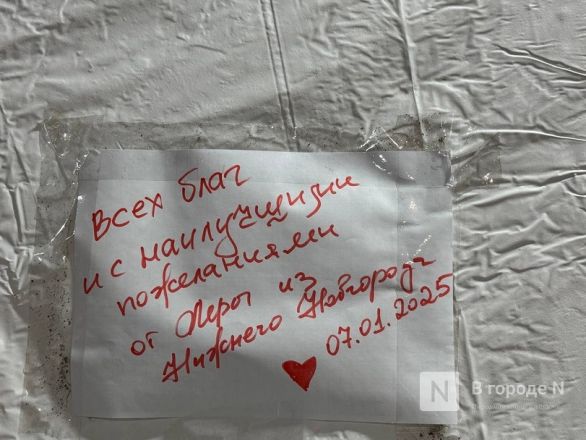 Всех благ
и с наилучшими
пожеланиями
от Леры из
Нижнего Новгорода
07.01.2025
В городе N